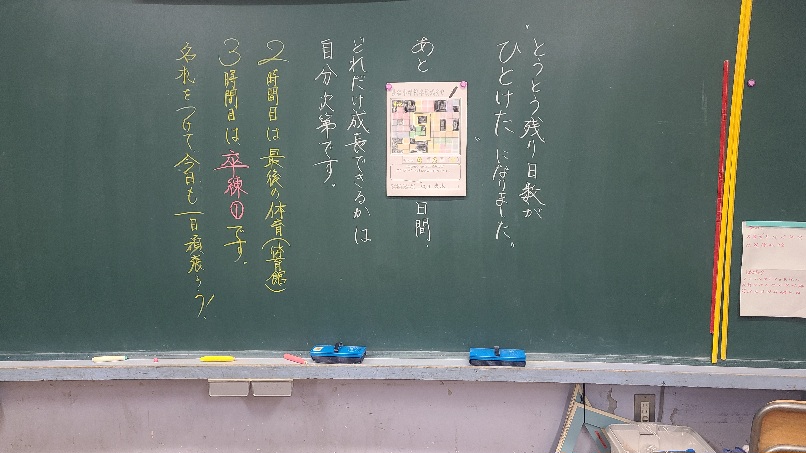 とうとう残り日数が
ひとけた になりました。
あと
日間。
どれだけ成長できるかは
自分次第です。
2時間目は最後の体育(体育館)
3時間目は卒練①です。
名札をつけて今日も一日頑張ろう!